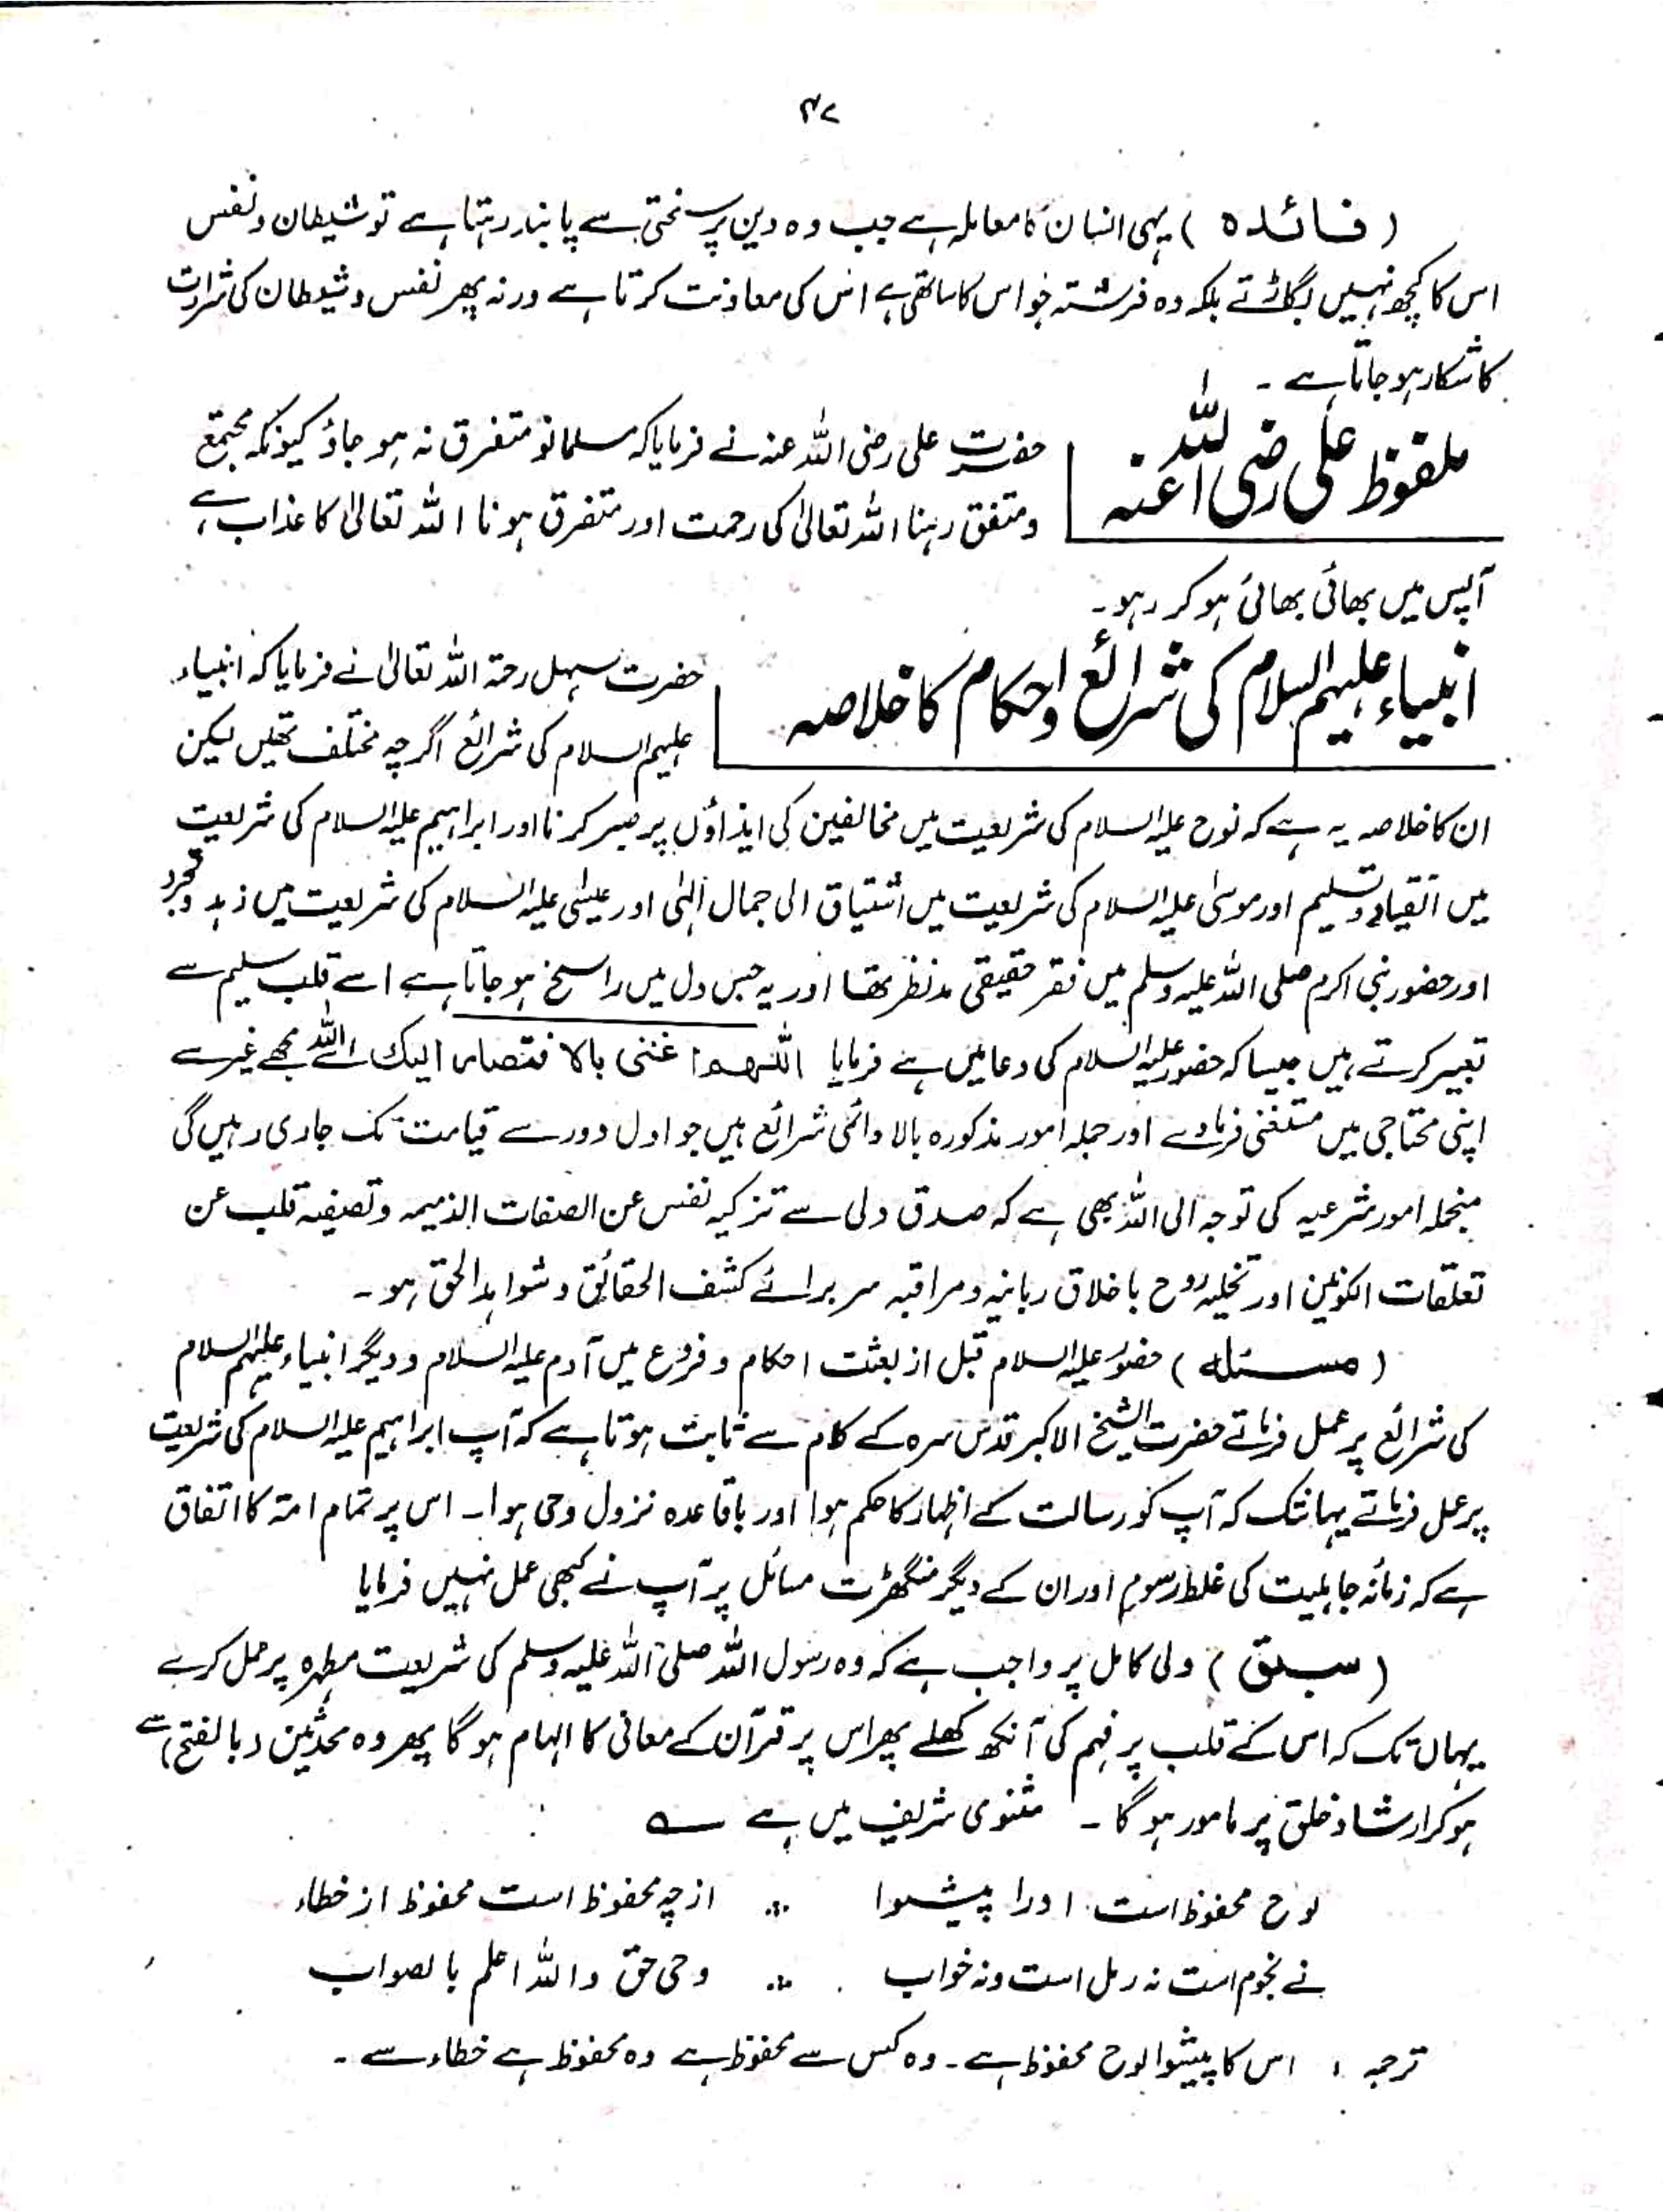 ۴۷
( فائدہ ) یہی انسان کا معاملہ ہے جب وہ دین پر سختی سے پابند رہتا ہے تو شیطان و نفس
اس کا کچھ نہیں بگاڑتے بلکہ وہ فرشتہ جو اس کا ساتھی ہے اس کی معاونت کرتا ہے ورنہ پھر نفس و شیطان کی شرارت
کا شکار ہو جاتا ہے ۔
ملفوظ علی رضی اللہ عنہ
حضرت علی رضی اللہ عنہ نے فرمایا کہ مسلمانو متفرق نہ ہو جاؤ کیونکہ مجتمع
و متفق رہنا اللہ تعالیٰ کی رحمت اور متفرق ہونا اللہ تعالیٰ کا عذاب ہے
آپس میں بھائی بھائی ہو کر رہو۔
انبیاء علیہم السلام کی شرائع و احکام کا خلاصہ
حضرت سہل رحمۃ اللہ تعالیٰ نے فرمایا کہ انبیاء
علیہم السلام کی شرائع اگرچہ مختلف تھیں لیکن
ان کا خلاصہ یہ ہے کہ نوح علیہ السلام کی شریعت میں مخالفین کی ایذاؤں پر صبر کرنا اور ابراہیم علیہ السلام کی شریعت
میں انقیاد و تسلیم اور موسیٰ علیہ السلام کی شریعت میں اشتیاق الی جمال الٰہی اور عیسٰی علیہ السلام کی شریعت میں زہد و تجرد
اور حضور نبی اکرم صلی اللہ علیہ وسلم میں فقر حقیقی مدنظر تھا اور یہ جس دل میں راسخ ہو جاتا ہے اسے قلب سلیم سے
تعبیر کرتے ہیں جیسا کہ حضور علیہ السلام کی دعا میں ہے فرمایا اللھم اغننی بالافتصار الیک اے اللہ مجھے غیر سے
اپنی محتاجی میں مستغنی فرما دے اور جملہ امور مذکورہ بالا دائمی شرائع ہیں جو اول دور سے قیامت تک جاری رہیں گی
منجملہ امور شرعیہ کی توجہ الی اللہ بھی ہے کہ صدق دلی سے تزکیہ نفس عن الصفات الذمیمہ و تصفیہ قلب عن
تعلقات الکونین اور تخلیہ روح باخلاق ربانیہ و مراقبہ سر برائے کشف الحقائق و شواہد الحق ہو ۔
( مسئلہ ) حضور علیہ السلام قبل از بعثت احکام و فروع میں آدم علیہ السلام و دیگر انبیاء علیہم السلام
کی شرائع پر عمل فرماتے حضرت الشیخ الاکبر قدس سرہ کے کلام سے ثابت ہوتا ہے کہ آپ ابراہیم علیہ السلام کی شریعت
پر عمل فرماتے یہانتک کہ آپ کو رسالت کے اظہار کا حکم ہوا اور باقاعدہ نزول وحی ہوا۔ اس پر تمام امۃ کا اتفاق
ہے کہ زمانہ جاہلیت کی غلط رسوم اور ان کے دیگر منگھڑت مسائل پر آپ نے کبھی عمل نہیں فرمایا
( سبق ) ولی کامل پر واجب ہے کہ وہ رسول اللہ صلی اللہ علیہ وسلم کی شریعت مطہرہ پر عمل کرے
یہاں تک کہ اس کے قلب پر فہم کی آنکھ کھلے پھر اس پر قرآن کے معانی کا الہام ہوگا پھر وہ محدّثین (بالفتح) سے
ہو کر ارشاد خلق پر مامور ہوگا ۔ مثنوی شریف میں ہے ؎
لوح محفوظ است اورا پیشوا ∴ از چہ محفوظ است محفوظ از خطاء
نے نجوم است نہ رمل است و نہ خواب ∴ وحی حق واللہ اعلم بالصواب
ترجمہ ؛ اس کا پیشوا لوح محفوظ ہے ۔ وہ کس سے محفوظ ہے وہ محفوظ ہے خطاء سے ۔